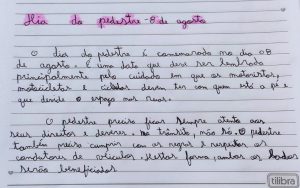 Dia do pedestre - 8 de agosto
O dia do pedestre é comemorado no dia 08
de agosto. É uma data que deve ser lembrada
principalmente pelo cuidado em que os motoristas,
motociclistas e ciclistas devem ter com quem está a pé e
que divide o espaço nas ruas.
O pedestre precisa ficar sempre atento aos
seus direitos e deveres. No trânsito, não só. O pedestre
também precisa cumprir com as regras e respeitar os
condutores de veículos. Desta forma, ambos os lados
serão beneficiados
tilibra